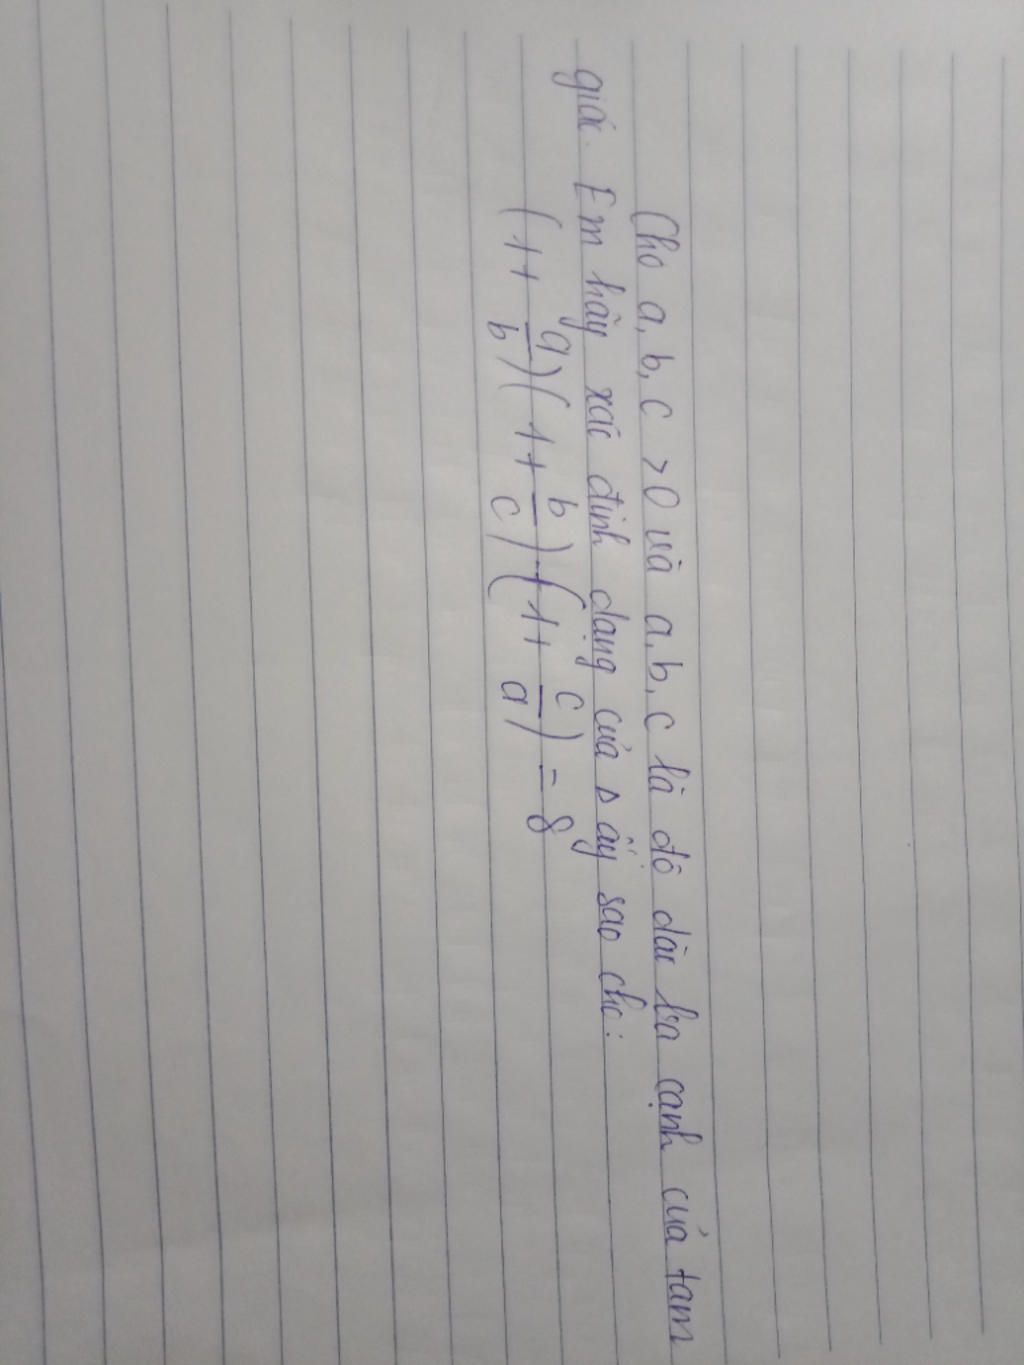 Cho a, b, c >0 và a, b, c là độ dài ba cạnh của tam
giác. Em hãy xác định dạng của Δ ấy sao cho:
(1+ a/b)(1+ b/c).(1+ c/a) = 8